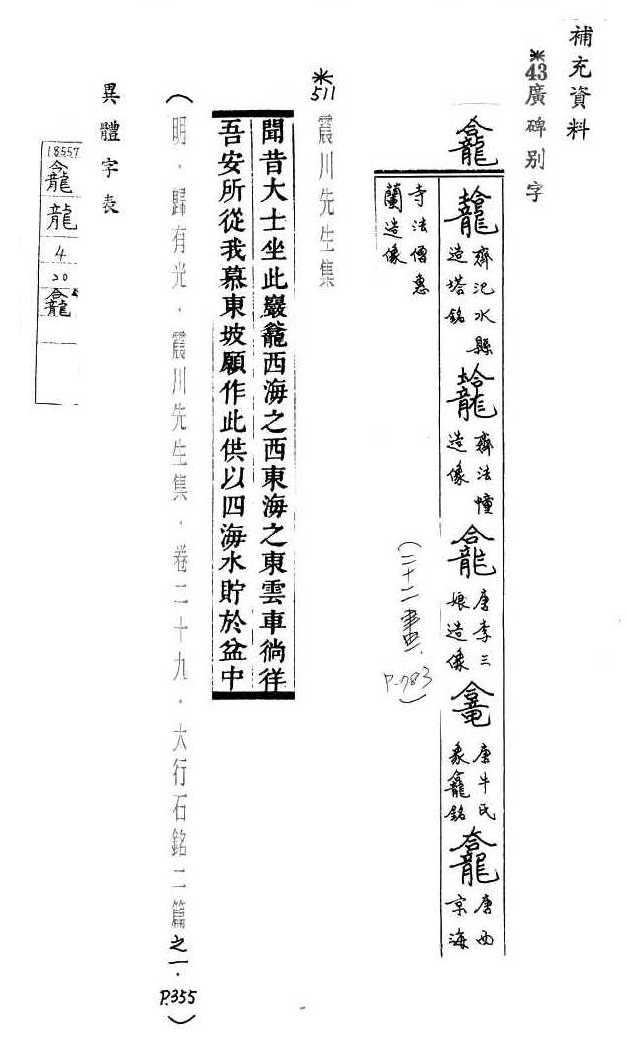 補充資料
*43廣碑別字
龕
齊氾水縣造塔銘
齊法幢造像
唐李三娘造像
唐牛氏象龕銘
唐西京海
寺法僧惠蘭造像
(二十二畫. P.783)
*511震川先生集
聞昔大士坐此巖龕西海之西東海之東雲車徜徉
吾安所從我慕東坡願作此供以四海水貯於盆中
(明．歸有光．震川先生集．卷二十九．大行石銘二篇之一．P.355)
異體字表
18557
龕
龍
4
20
龕